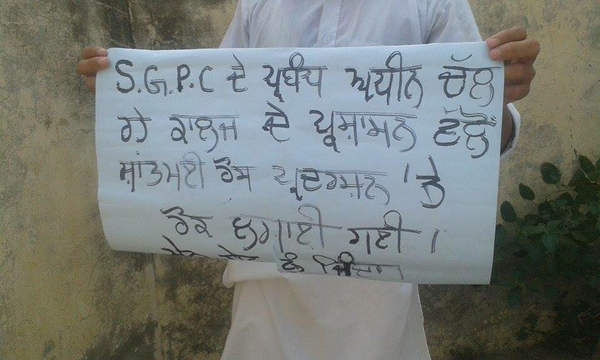 S.G.P.C ਦੇ ਪ੍ਰਬੰਧ ਅਧੀਨ ਚੱਲ
ਰਹੇ ਕਾਲਜ ਦੇ ਪ੍ਰਸ਼ਾਸਨ ਵੱਲੋਂ
ਸ਼ਾਂਤਮਈ ਰੋਸ ਪ੍ਰਦਰਸ਼ਨ 'ਤੇ
ਰੋਕ ਲਗਾਈ ਗਈ।